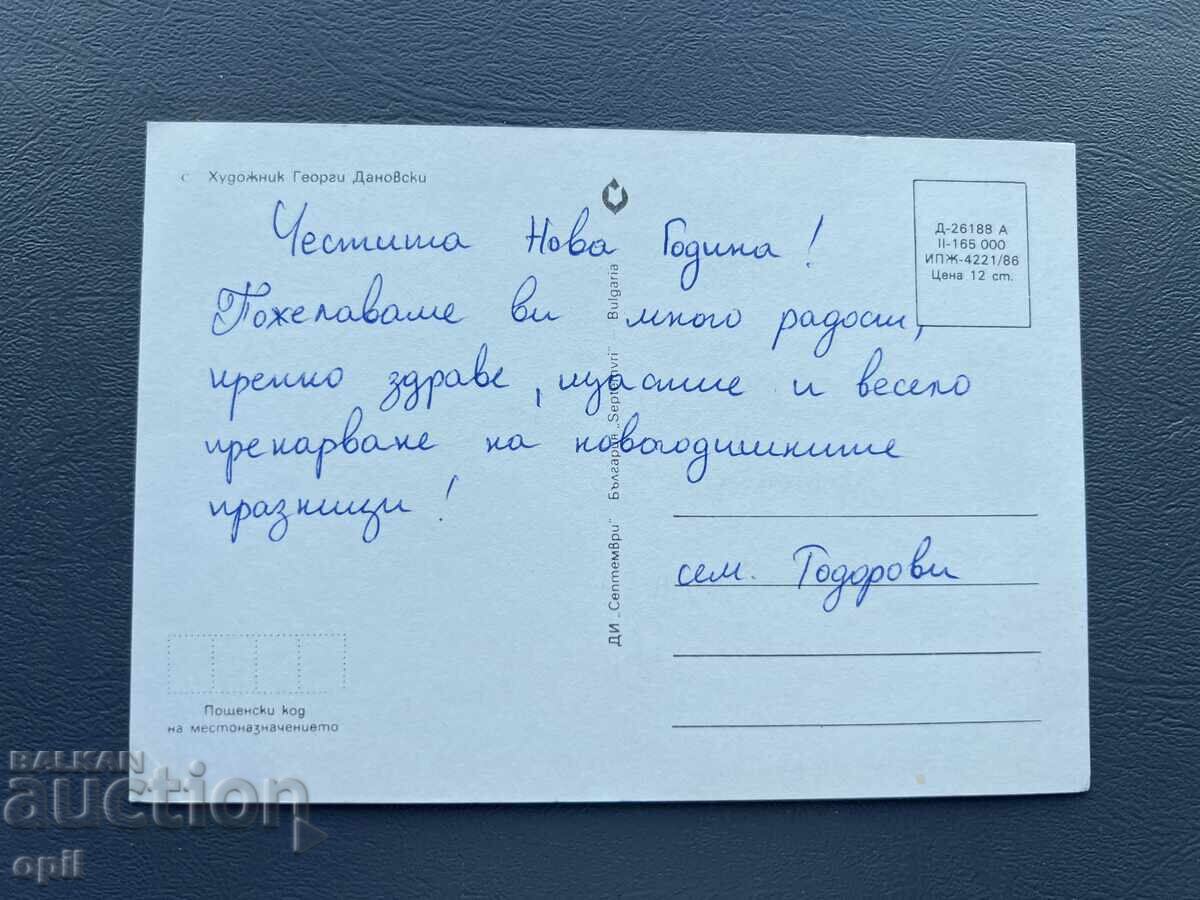 с Художник Георги Дановски
Честита Нова Година!
Пожелаваме ви много радост,
крепко здраве, щастие и весело
прекарване на новогодишните
празници!
Д-26188 А
II-165 000
ИПЖ-4221/86
Цена 12 ст.
ДИ „Септември" България „Septemvri" Bulgaria
сем. Тодорови
Пощенски код
на местоназначението
BALKAN
auction
opil